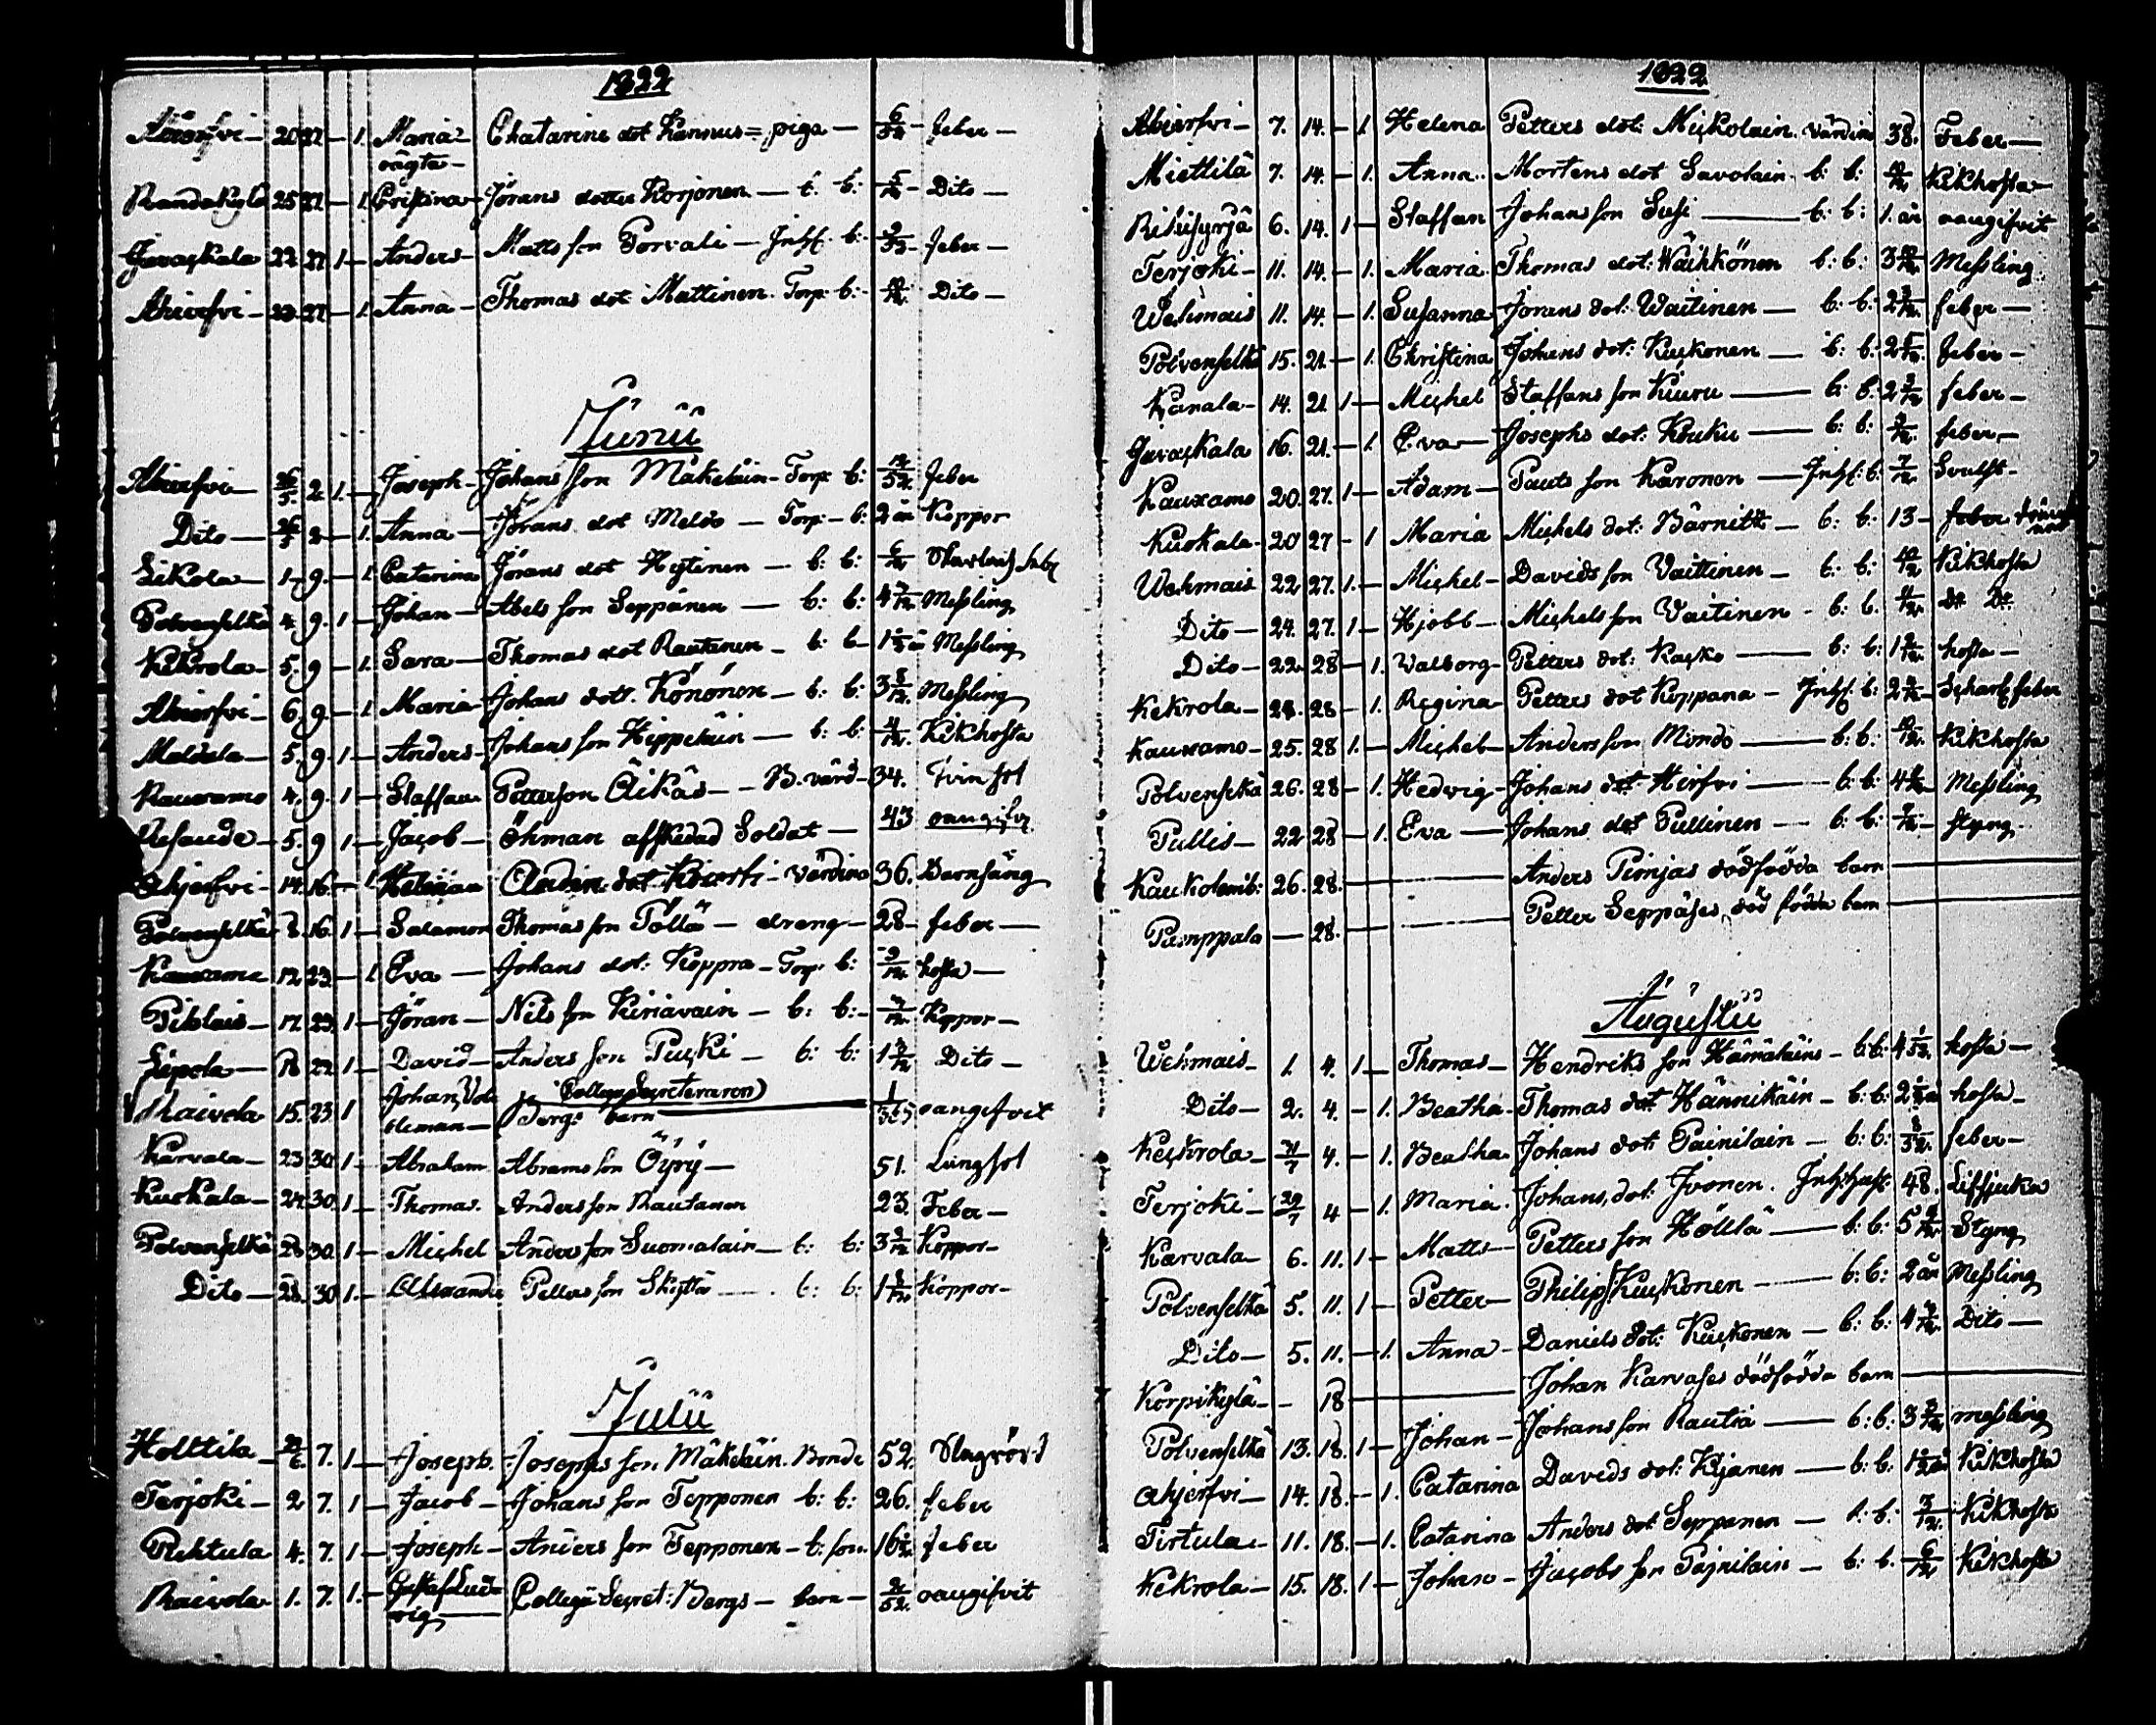 1822
Maria Chatarine dot Kannus= piga — 6/52 — feber —
oägta —
25 27 — 1 Cristina — Jörans dotter Korjonen — b: b: 5/12 — Dito —
22 27 1 — Anders — Matts son Torvali — Inhs. b: feber —
27 — 1 Anna — Thomas dot Mattinen Torp: b: Dito —
Junii
26/5 2 1 — Joseph — Johans son Mäkeläin — Torp: b: 12/52 feber
Dito — 2 — 1. Anna — Jörans dot Meldo — Torp: — b: 2 år Koppor
Likola — 1 — 9 — 1 Catarina Jörans dot Hytinen — b: b: 6/12
Polvenselkä 4. 9. 1 — Johan — Abels son Seppänen — b: b: 4 Messling
Kekrola — 5. 9 — 1. Sara — Thomas dot Rautanen — b: b — Messling
6. 9. — 1 Maria — Johans dott. Könönen — b: b: 3 8/12 Messling
5. 9. 1 — Anders — Johans son Hippeläin — b: b: Kikhosta
Rauvamo 4. 9. 1 — Staffan Petterson Äikäs — B. värd — 34. Tvinsot
5. 9 1 — Jacob — Öhman afskedad Soldat — 43 oangifv
14. 16 — 1 värdina 36. Barnsäng
Polvenselkä 16. 1 — Salamon Thomas son Pöllä — dreng — 28 — feber —
12 23 — 1 Eva — Johans dot: Koppra — Torp: b: 9/12 hosta —
Piblais — 17. 23. 1 — Jöran — Nils son Kiriavain — b: b: — Koppor —
Lipola — 18 22 1 — David — Anders son Pucki — b: b: 1 Dito —
Raivola 15. 23 1 Johan, Vol
demar — Collegii Secreteraren Bergs barn — 1/365 oangifvit
Karvala — 23 30 1 — Abraham Abrams son Öÿrÿ — 51. Lungsot
Kuokala — 24 30 1 — Thomas. Anders son Rautanen 23. Feber —
Polvenselkä 28 30. 1 — Michel Anders son Suomalain — b: b: 3 Koppor —
Dito — 28. 30 1 — Alexander Petters son Skÿttä — b: b: 1 8/12 Koppor —
Julii
Holttila — 7. 1 — Joseph. Josephs son Mäkeläin. Bonde 52.
Terjoki — 2 7. 1 — Jacob — Johans son Tepponen b: b: 26. feber
Rehtula 4. 7. 1 — Joseph — Anders son Tepponen — b: son feber
Raivola 1. 7. 1. — Gustaf Lud=
vig — Collegii Secret: Bergs — barn — 2/52. oangifvit
1822
7. 14. — 1. Helena Petters dot: Mickolain. värdin 38. Feber —
Miettilä 7. 14. — 1. Anna. Mortens dot Savolain b: b: Kikhosta —
6. 14. 1 — Staffan Johans son Susi — b: b: 1. år oangifvit
Terjoki — 11. 14. — 1. Maria Thomas dot: Wäihkönen b: b: 3 Messling
Wehmais 11. 14. — 1. Susanna Jörans dot: Waitinen — b: b: 2 feber —
Polvenselkä 15. 21. — 1. Christina Johans dot: Kuckonen — b: b: 2 feber —
Kanala — 14. 21. 1 — Michel Staffans son Kiuru — b: b: 2 feber —
Javackala 16. 21. — 1. Eva — Josephs dot: Kouku — b: b: feber —
Kauxamo 20. 27. 1 — Adam — Pauls son Karonen — Inhs: b: 7/12 Svulst —
Kuokala — 20 27 — 1 Maria Michels dot: Bärnitt — b: b: 13 —
Wehmais 22 27. 1. — Michel — Davids son Vaittinen — b: b: Kikhosta
Dito — 24. 27. 1 — Hjobb — Michels son Vaitinen — b: b. Do Do
Dito — 22 28 — 1. Walborg — Petters dot: Kacko — b: b: hosta —
Kekrola — 28 — 1. Regina — Petters dot Koppana — Inhs. b: 2 Scharl feber
Kauxamo — 25. 28 1. — Michel — Anders son Mondo — b: b: Kikhosta
Polvenselkä 26. 28 — 1. Hedwig — Johans dot Hirfvi — b: b: Messling
Pullis — 22 28 — 1. Eva — Johans dot Pullinen — b: b: styng
26. 28. — Anders Pimjas dödfödda barn —
Pamppala — 28. — Petter Seppäses död födda barn —
Augustii
Wehmais — 1. 4. 1 — Thomas — Hendriks son Hämäläins — b: b: 4 hosta —
Dito — 2. 4. — 1. Beatha — Thomas dot Hännikäin — b: b: 2 hosta —
Keckrola — 31/7 4. — 1. Beatha Johans dot: Painilain — b: b: feber —
Terjoki — 29/7 4 — 1. Maria. Johans dot: Ivonen. 48. Lifsjuka
Karvala — 6. 11. 1 — Matts — Petters son Höltlä — b: b: 5 Styng
Polvenselkä 5. 11. 1 — Petter — Philips Kuckonen — b: b: 2 år Messling
Dito — 5. 11. — 1. Anna — Daniels dot: Kuckonen — b: b: 4 Dito —
Korpikylä — 18 — Johan Karvases dödfödda barn —
Polvenselkä 13. 18. 1 — Johan — Johans son Rautia — b: b: 3 messling
14. 18. — 1. Catarina Davids dot: Kijanen — b: b: Kikhosta
Tirtula — 11. 18. — 1. Catarina Anders dot Seppanen — b: b: Kikhosta
Kekrola — 15. 18. 1 — Johan — Jacobs son Pajnilain — b: b. 6/12 Kikhosta